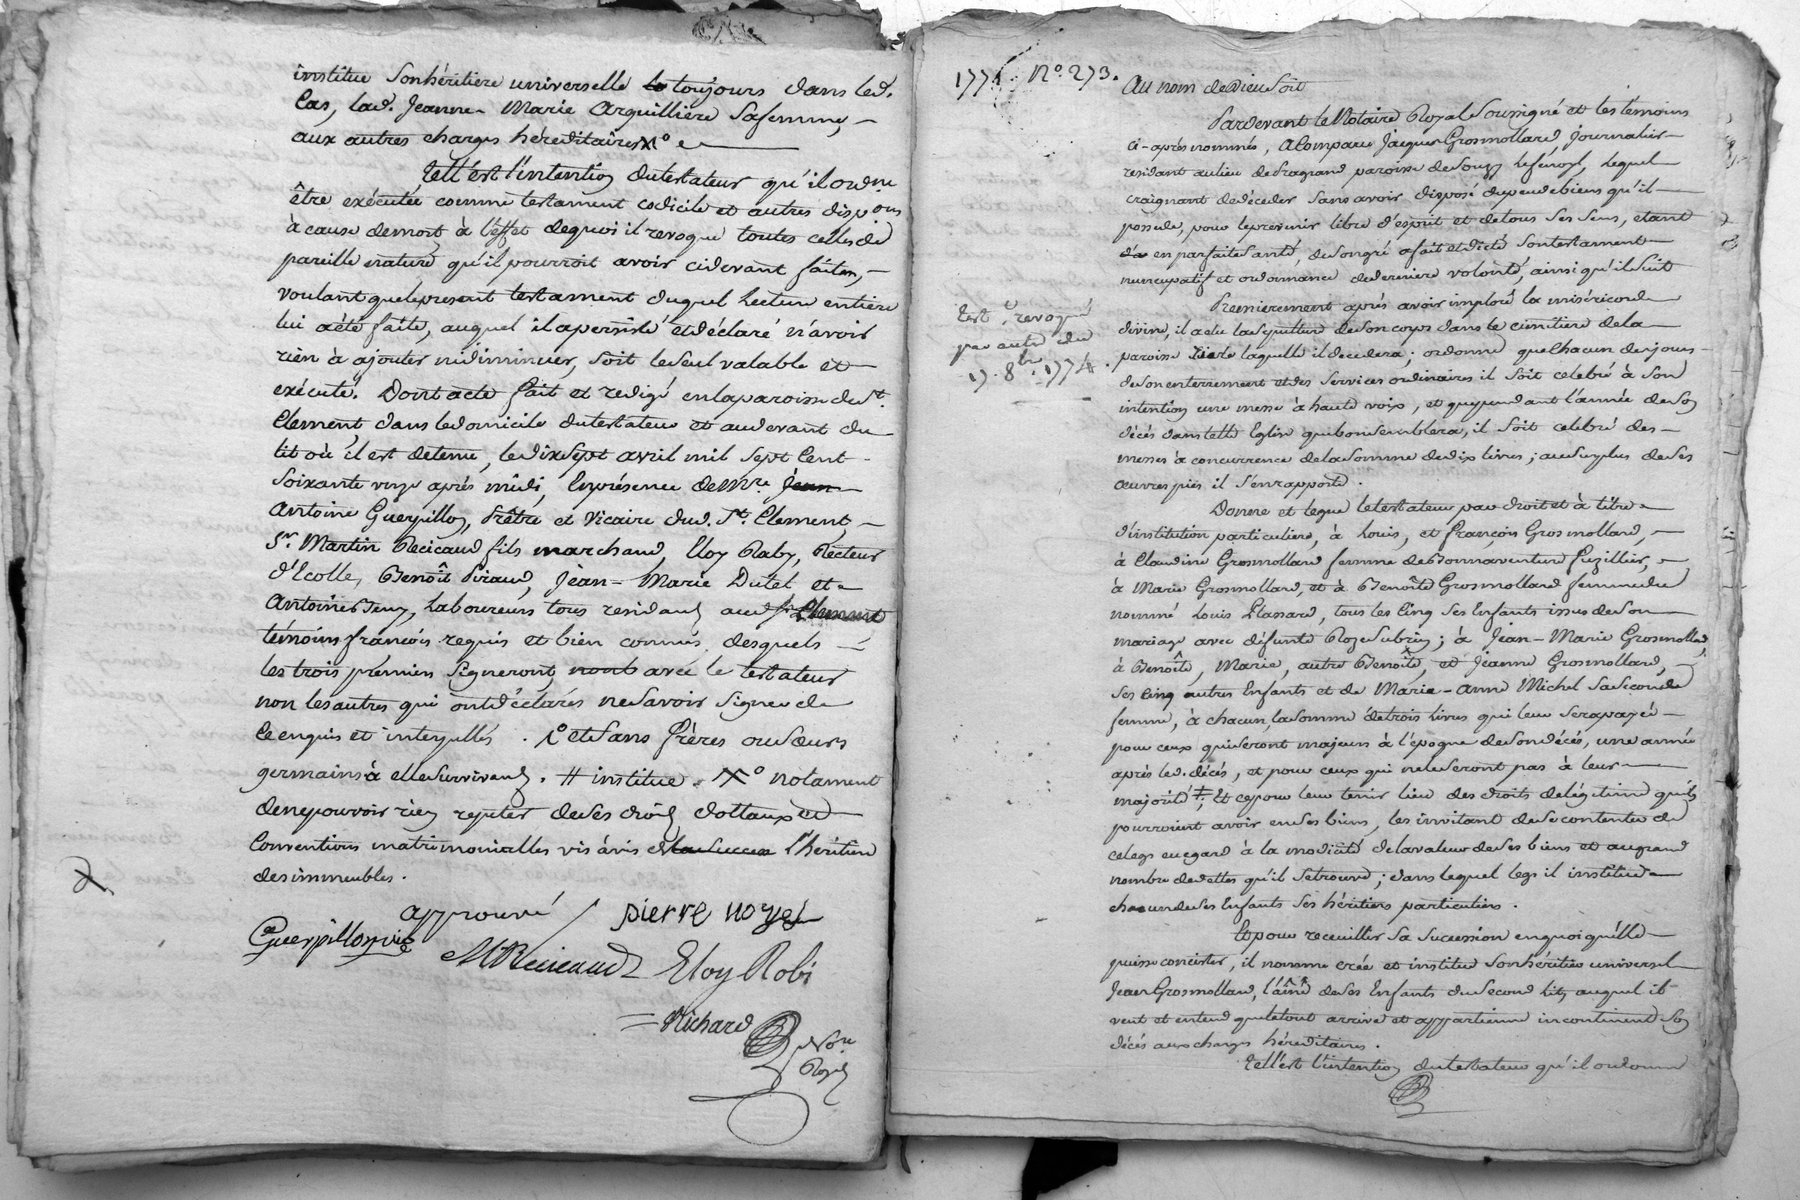 institue son héritiere universelle toujours dans led.
Cas, lad. Jeanne-Marie Arquilliere Safemme, -
aux autres charges héréditaires X°
tell'est l'intention dutestateur qu'il ordne
être exécutée comme testament codicile et autres dispons
à cause demort à l'effet dequoi il revoque toutes cellesde
pareille nature qu'il pourroit avoir cidevant faites, -
voulant quelepresent testament duquel Lecture entiere
lui aété faite, auquel il apersisté etdéclaré n'avoir
rien à ajouter nidiminuer, soit leseul valable et
exécuté. Dont acte fait et redigé enlaparoisse de St.
Clement dans ledomicile dutestateur et audevant du
lit où il est detenu, ledixsept avril mil sept Cent
Soixante onze après midi, Enprésence de Mre. Jean
Antoine Guerpillon, Prêtre et Vicaire dud. St. Clement, -
Sr. Martin Recicaud fils marchand, Eloy Raby, Recteur
d'Ecolle, Benoît Piraud, Jean-Marie Dutel et
Antoine Beny, Laboureurs tous residants aud St. Clement
témoins françois requis et bien connus, desquels
les trois premiers signeront, avec le testateur
non lesautres qui ontdéclarés nesavoir signer de
ce enquis et interpellés. 1° et sans frères ousœurs
germains à ellesurvivants. # institue. X° notament
denepouvoir rien reputer deses droits dottaux et
Conventions matrimonialles vis àvis de lasucces l'héritier
desimmeubles.
approuvé pierre noyel
Guerpillon vic
MRecicaud Eloy Robi
Richard
Not.re
Royal
1771. N°. 273.
Au nom de Dieu Soit
Pardevant le Notaire Royal Soussigné et les témoins
ci-après nommés, A Comparu Jacques Grosmollard, journalier
residant aulieu de Fragnand paroisse de Souzy , lequel
craignant dedéceder sans avoir disposé dupeudebiens qu'il
possede, pour leprevenir libre d'esprit et detous ses sens, etant
en parfaite santé, desongré afait etdicté sontestament
nuncupatif et ordonnance dederniere volonté, ainsi qu'ilsuit
Premierement après avoir imploré la miséricorde
divine, il aelu lasepulture desoncorps dans le cimetiere dela
paroisse laquelle il decedera; ordonne que Chacun desjours
desonenterrement etdes services ordinaires il soit celebré à son
intention une messe à haute voix, et quependant l'année deson
décés danstelle Eglise quebonsemblera, il soit celebré des -
messes à concurrence delasomme dedix livres; ausurplus deses
œuvres pies il s'enrapporte.
Test. revoqué
par autre du
17. 8bre. 1774.
Donne et legue letestateur pardroit et à titre
d'institution particuliere, à Louis, et François Grosmollard, -
à Claudine Grosmollard femme de Bonnaventure Fuzillier,
à Marie Grosmollard, et à Benoîte Grosmollard femmedu
nommé Louis Plassard, tous les Cinq ses Enfants issus deson
mariage avec défunte Roze Subrin; à Jean-Marie Grosmollard,
à Benoîte, Marie, autre Benoîte, et Jeanne Grosmollard, -
ses Cinq autres Enfants et de Marie-Anne Michel saseconde
femme, à chacun, lasomme detrois livres qui leur serapayée
pour ceux quiseront majeurs à l'époque desondécés, une année
après led. décés, et pour ceux qui neleseront pas à leur
majorité ‡. Et cepour leur tenir lieu des droits delégitime qu'ils
pourroient avoir enses biens, les invitant dese contenter de
celegs euegard à la modicité delavaleur deses biens et augrand
nombre dedettes qu'il setrouve; dans lequel legs il institue
chacun deses Enfants ses héritiers particuliers.
Et pour receuillir Sa Sucession enquoi qu'elle
puisse concister, il nomme crée et institue sonhéritier universel
Jean Grosmollard, l'aîné deses Enfants dusecond lit, auquel il
veut et entend queletout arrive et appartienne incontinent son
décés aux charges héréditaires.
Tell'est l'intention dutestateur qu'il ordonne